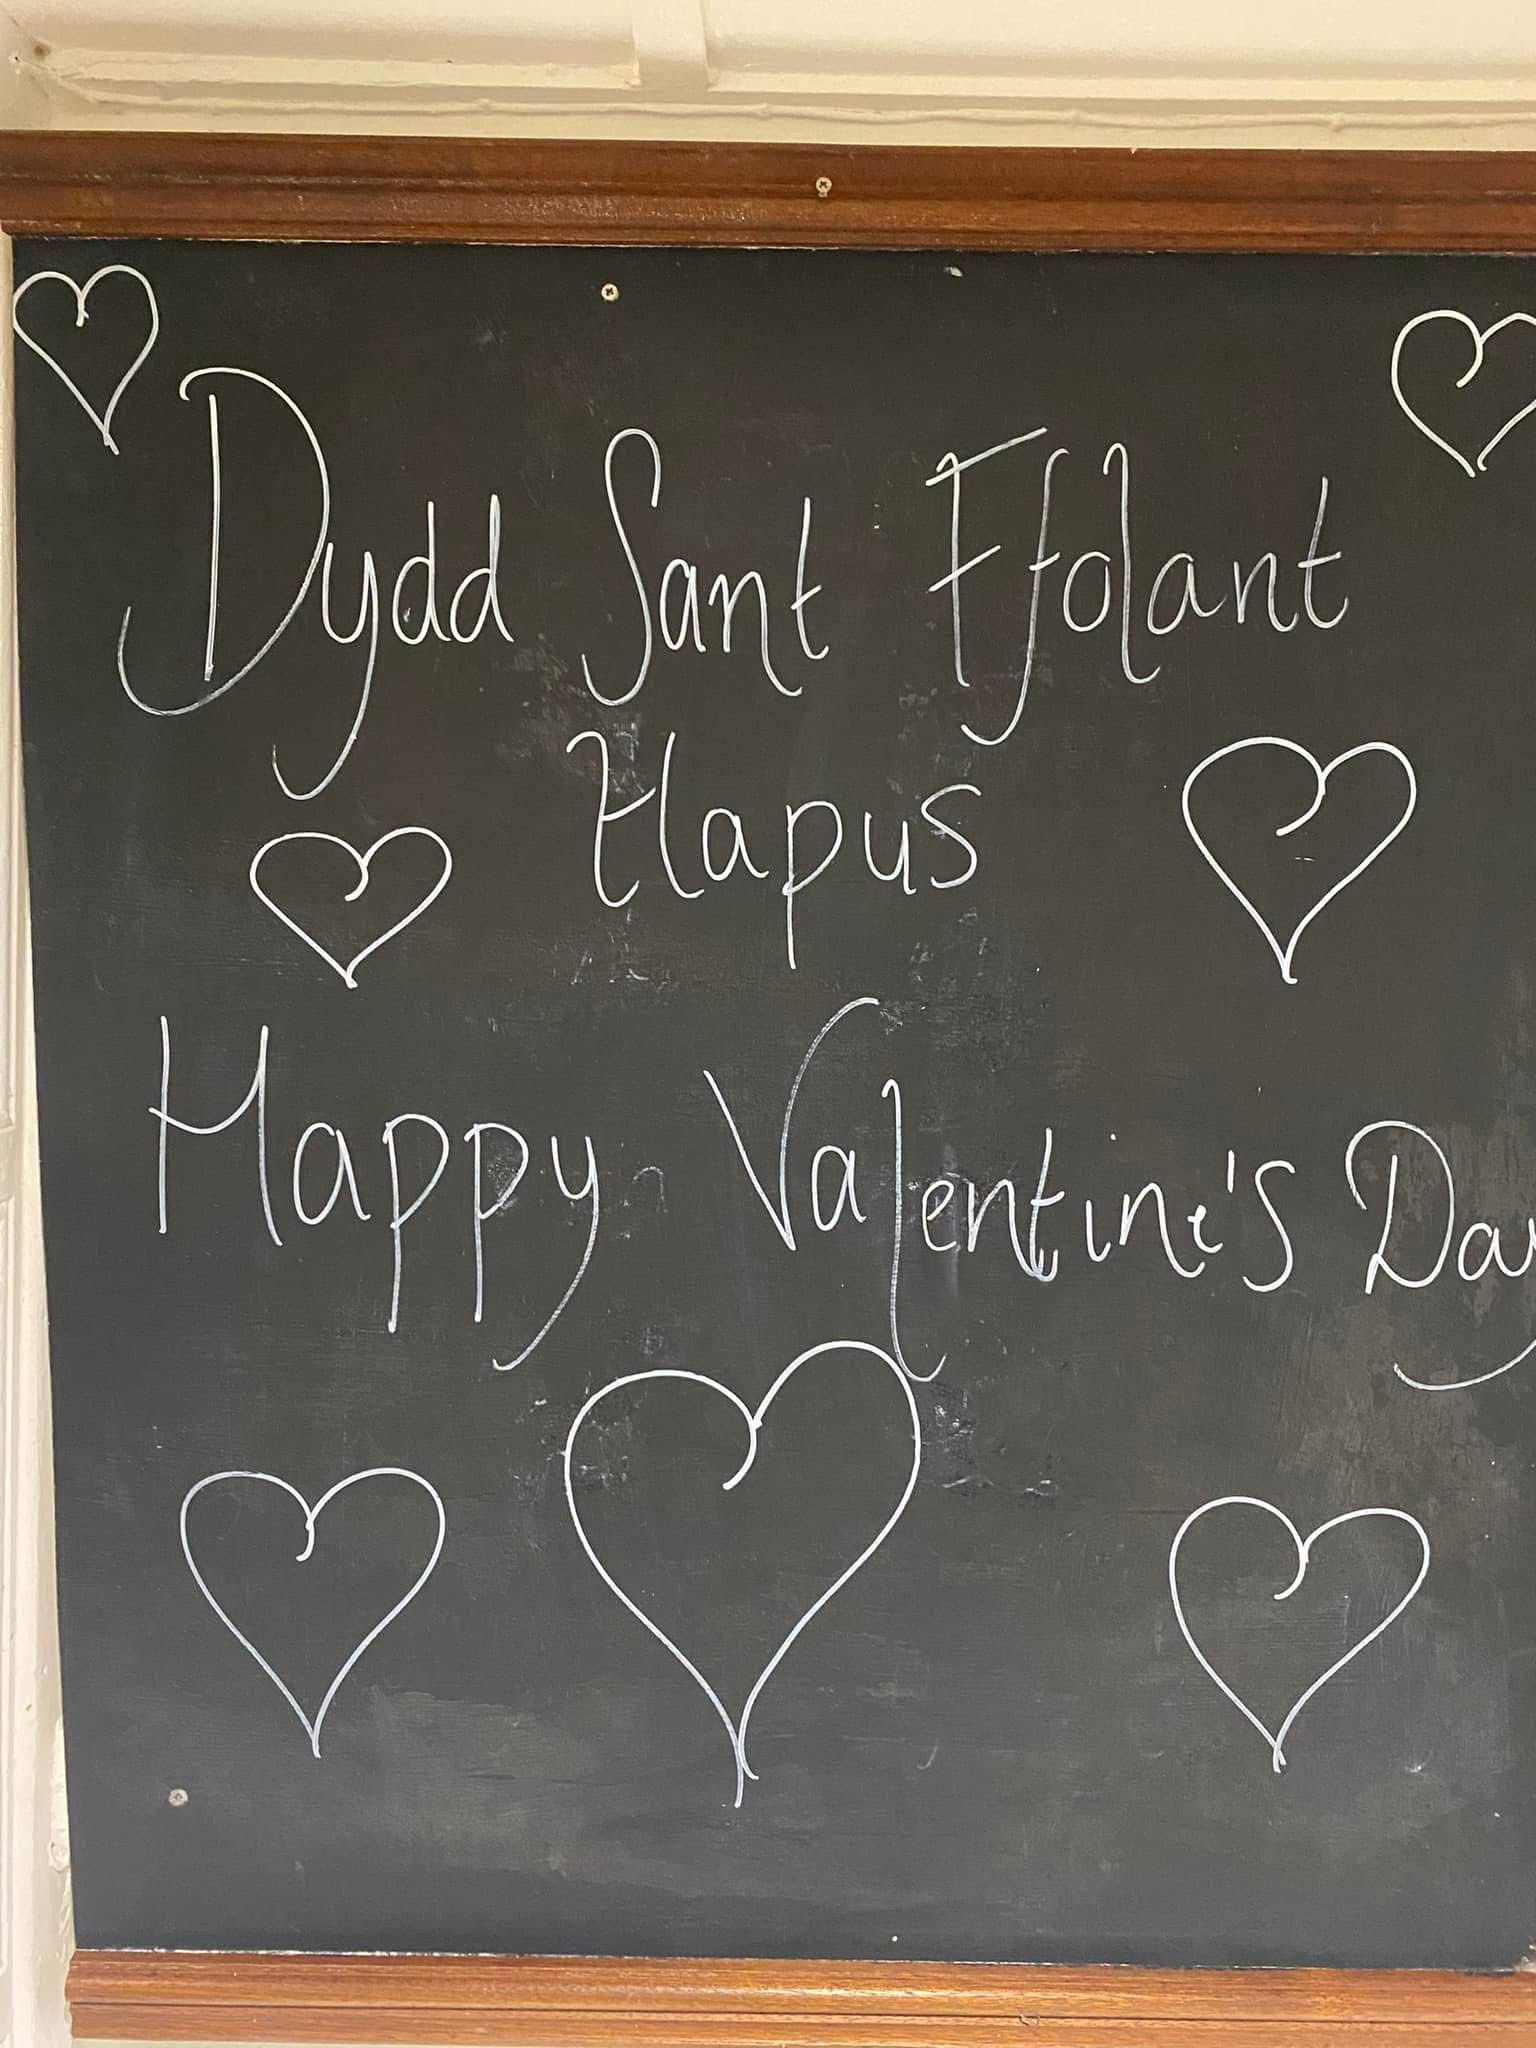 Dydd Sant Ffolant
Hapus
Happy Valentine's Day